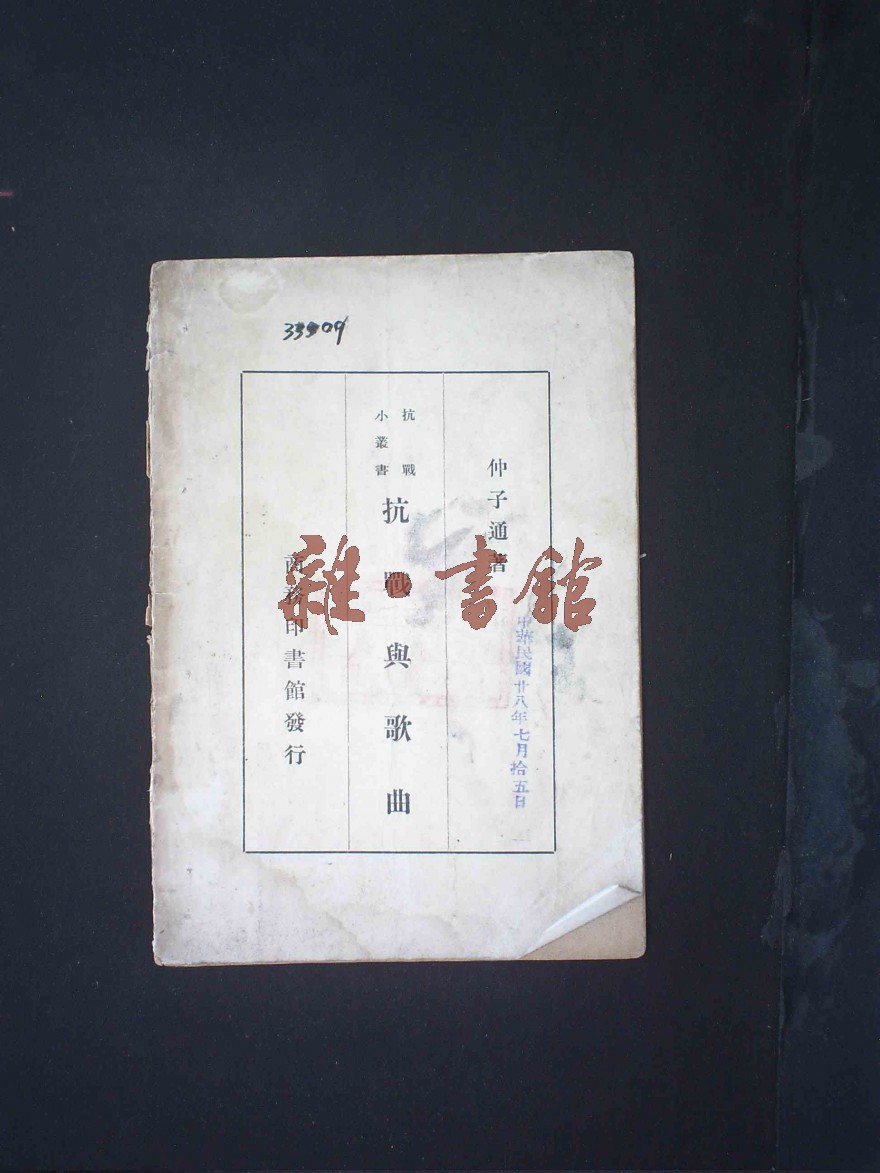 33909
仲子通著
抗戰
小叢書
抗戰與歌曲
商務印書館發行
中華民國廿八年七月拾五日
雜·書館